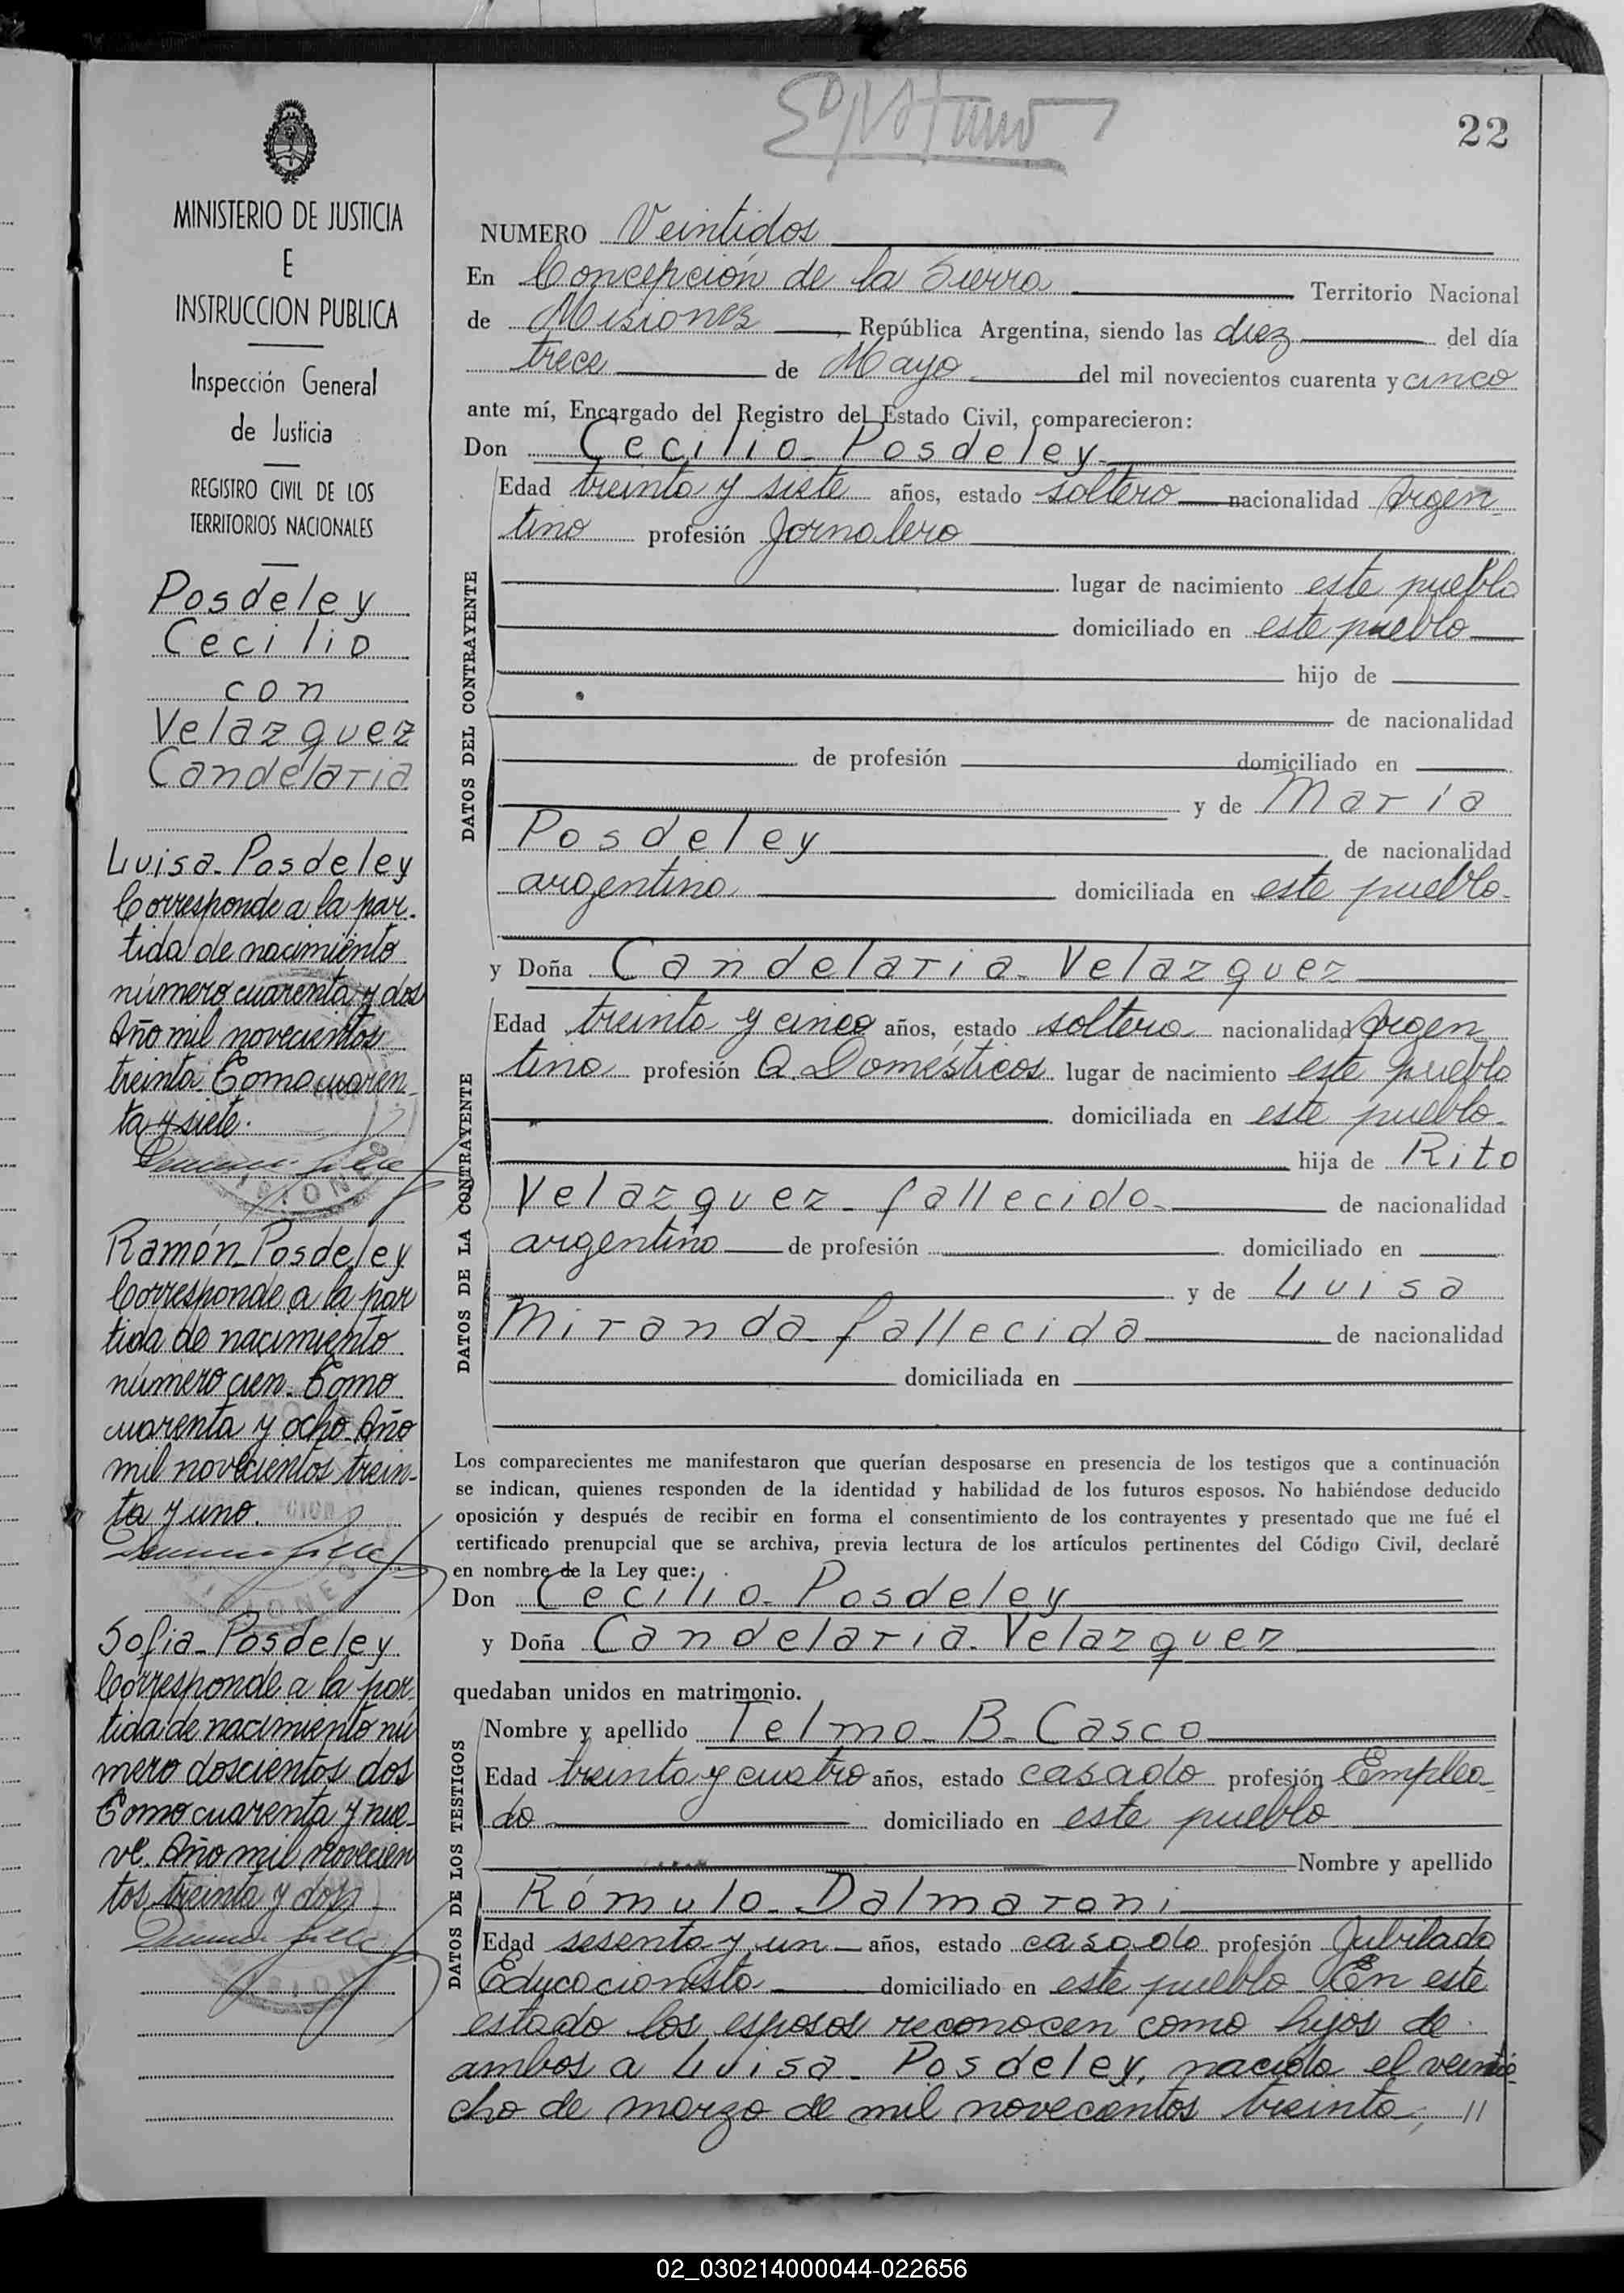 22
MINISTERIO DE JUSTICIA
E
INSTRUCCION PUBLICA
Inspección General
de Justicia
REGISTRO CIVIL DE LOS
TERRITORIOS NACIONALES
Posdeley
Cecilio
con
Velazquez
Candelaria
Luisa - Posdeley
Corresponde a la par-
tida de nacimiento
número cuarenta y dos
Año mil novecientos
treinta. Tomo cuaren-
ta y siete.
Ramón - Posdeley
Corresponde a la par
tida de nacimiento
número cien. Tomo
cuarenta y ocho. Año
mil novecientos trein-
ta y uno.
Sofia - Posdeley
Corresponde a la par-
tida de nacimiento nú
mero doscientos dos
Tomo cuarenta y nue-
ve. Año mil novecien
tos treinta y dos
NUMERO Veintidos
En Concepción de la Sierra Territorio Nacional
de Misiones, República Argentina, siendo las diez del día
trece de Mayo del mil novecientos cuarenta y cinco
ante mí, Encargado del Registro del Estado Civil, comparecieron:
Don Cecilio - Posdeley
DATOS DEL CONTRAYENTE
Edad treinta y siete años, estado soltero nacionalidad Argen-
tino profesión Jornalero
lugar de nacimiento este pueblo
domiciliado en este pueblo
hijo de
de nacionalidad
de profesión domiciliado en
y de Maria
Posdeley de nacionalidad
argentina domiciliada en este pueblo-
y Doña Candelaria - Velazquez
DATOS DE LA CONTRAYENTE
Edad treinta y cinco años, estado soltera nacionalidad Argen-
tina profesión Q. Domésticos lugar de nacimiento este pueblo
domiciliada en este pueblo-
hija de Rito
Velazquez - fallecido- de nacionalidad
argentino de profesión domiciliado en
y de Luisa
Miranda - fallecida de nacionalidad
domiciliada en
Los comparecientes me manifestaron que querían desposarse en presencia de los testigos que a continuación
se indican, quienes responden de la identidad y habilidad de los futuros esposos. No habiéndose deducido
oposición y después de recibir en forma el consentimiento de los contrayentes y presentado que me fué el
certificado prenupcial que se archiva, previa lectura de los artículos pertinentes del Código Civil, declaré
en nombre de la Ley que:
Don Cecilio - Posdeley
y Doña Candelaria - Velazquez
quedaban unidos en matrimonio.
DATOS DE LOS TESTIGOS
Nombre y apellido Telmo - B - Casco
Edad treinta y cuatro años, estado casado profesión Emplea-
do domiciliado en este pueblo
Nombre y apellido
Rómulo - Dalmaroni
Edad sesenta y un años, estado casado profesión Jubilado
Educacionista domiciliado en este pueblo En este
estado los esposos reconocen como hijos de
ambos a Luisa - Posdeley, nacida el veintio-
cho de marzo de mil novecentos treinta; //
02_030214000044-022656